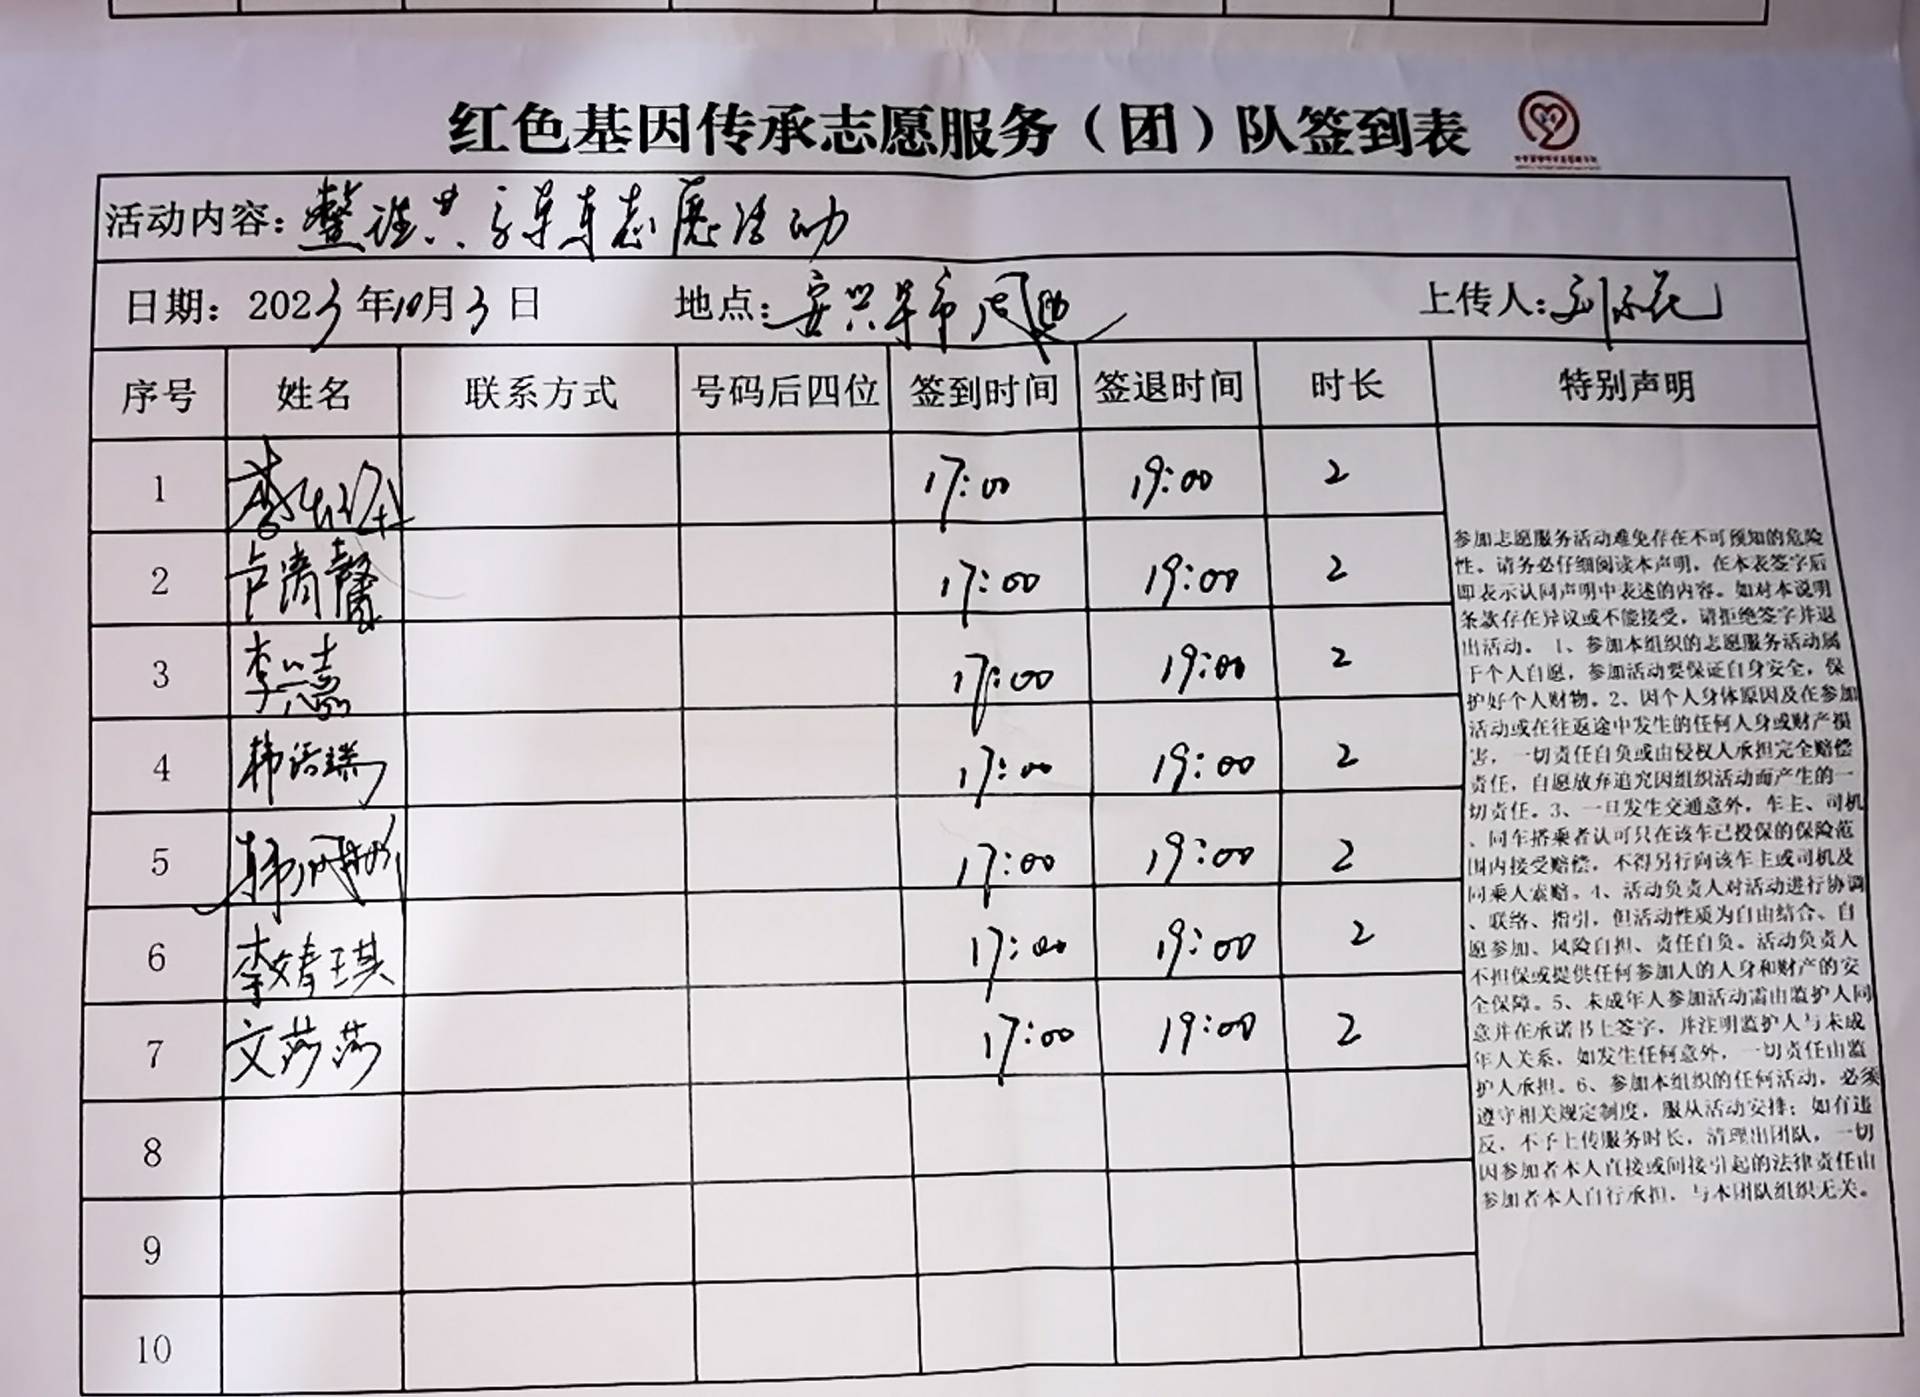 红色基因传承志愿服务（团）队签到表
活动内容：整理共享单车志愿活动
日期：2023年10月3日 地点：安兴早市周边 上传人：
序号 姓名 联系方式 号码后四位 签到时间 签退时间 时长 特别声明
1 17:00 19:00 2
2 卢漪馨 17:00 19:00 2
3 李心慧 17:00 19:00 2
4 韩语瑞 17:00 19:00 2
5 17:00 19:00 2
6 李婧琪 17:00 19:00 2
7 文莎莎 17:00 19:00 2
8
9
10
参加志愿服务活动难免存在不可预知的危险
性。请务必仔细阅读本声明，在本表签字后
即表示认同声明中表述的内容。如对本说明
条款存在异议或不能接受，请拒绝签字并退
出活动。 1、参加本组织的志愿服务活动属
于个人自愿，参加活动要保证自身安全，保
护好个人财物。2、因个人身体原因及在参加
活动或在往返途中发生的任何人身或财产损
害，一切责任自负或由侵权人承担完全赔偿
责任，自愿放弃追究因组织活动而产生的一
切责任。3、一旦发生交通意外，车主、司机
、同车搭乘者认可只在该车已投保的保险范
围内接受赔偿，不得另行向该车主或司机及
同乘人索赔。4、活动负责人对活动进行协调
、联络、指引，但活动性质为自由结合、自
愿参加、风险自担、责任自负。活动负责人
不担保或提供任何参加人的人身和财产的安
全保障。5、未成年人参加活动需由监护人同
意并在承诺书上签字，并注明监护人与未成
年人关系，如发生任何意外，一切责任由监
护人承担。6、参加本组织的任何活动，必须
遵守相关规定制度，服从活动安排；如有违
反，不予上传服务时长，清理出团队，一切
因参加者本人直接或间接引起的法律责任由
参加者本人自行承担，与本团队组织无关。